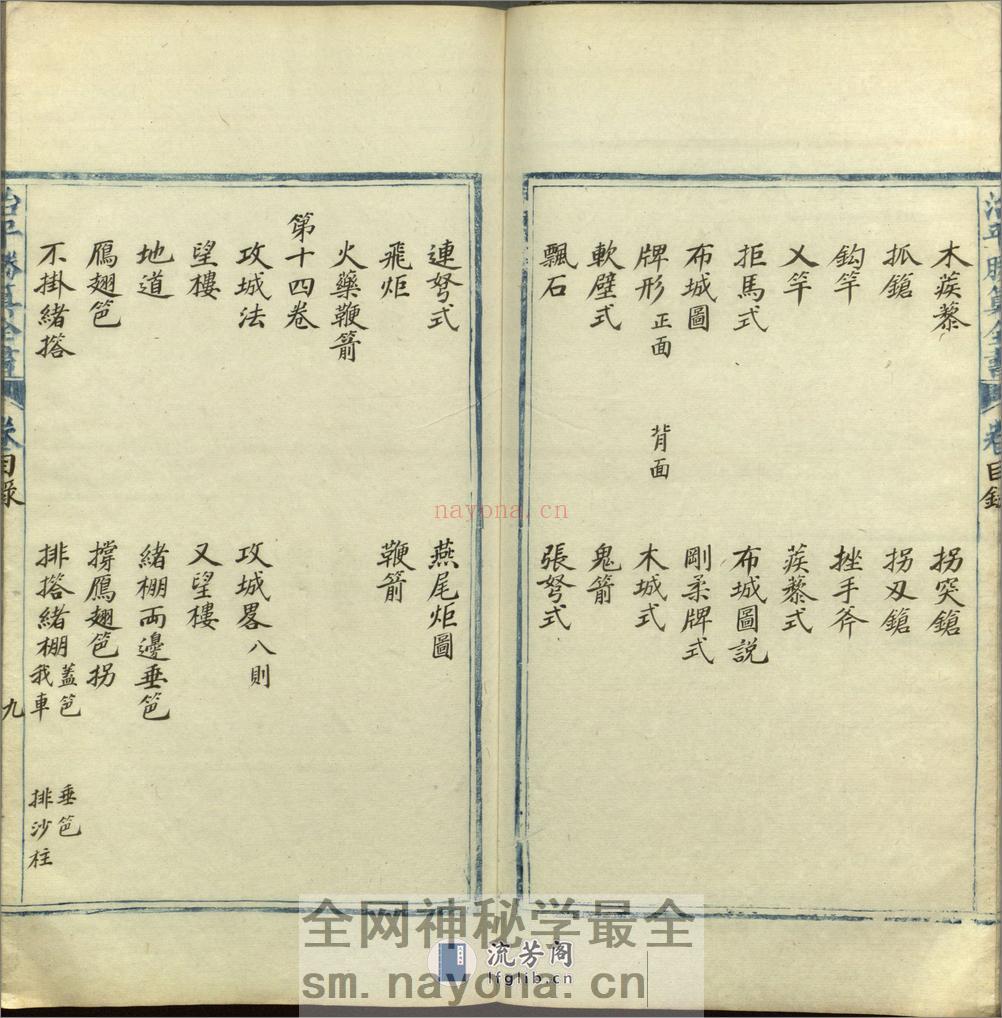 木蒺藜 拐突鎗
抓鎗 拐刄鎗
鈎竿 挫手斧
乂竿 蒺藜式
拒馬式 布城圖説
布城圖 剛柔牌式
牌形 正面 背面 木城式
軟壁式 鬼箭
飄石 張弩式
連弩式 燕尾炬圖
飛炬 鞭箭
火藥鞭箭
第十四卷
攻城法 攻城畧八則
望樓 又望樓
地道 緒棚両邊垂笆
鴈翅笆 撐鴈翅笆拐
不掛緒搭 排搭緒棚 蓋笆 垂笆
我車 排沙柱
卷目錄
卷目録
九
nayona.cn
全网神秘学最全
流芳阁
lfglib.cn
sm.nayona.cn